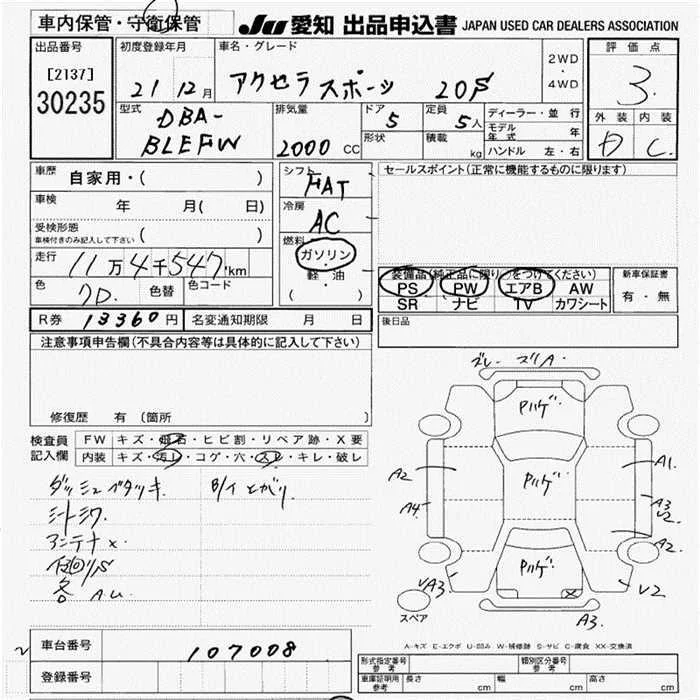 車内保管・守衛保管
JU 愛知 出品申込書 JAPAN USED CAR DEALERS ASSOCIATION
出品番号
[2137]
30235
初度登録年月
21 12月
車名・グレード
アクセラスポーツ 20S
2WD
・
4WD
評価点
3
外装 内装
D C
型式
DBA-
BLEFW
排気量
2000 CC
ドア
5
形状
定員
5人
積載
kg
ディーラー・並行
モデル年式 年
ハンドル 左・右
車歴 自家用・( )
車検 年 月( 日)
受検形態
車検付きのみ記入して下さい ( )
走行 11万4千547km
色 7D. 色替 色コード
シフト
FAT
冷房
AC
燃料
ガソリン
軽・油
( )
セールスポイント(正常に機能するものに限ります)
装備品(純正品に限り○をつけてください)
PS PW エアB AW
SR ナビ TV カワシート
新車保証書
有・無
R券 13360円 名変通知期限 月 日
後日品
注意事項申告欄(不具合内容等は具体的に記入して下さい)
修復歴 有(箇所
検査員
記入欄
FW キズ・飛石・ヒビ割・リペア跡・X要
内装 キズ・汚レ・コゲ・穴・スレ・キレ・破レ
ダッシュベタツキ
シートシワ
アンテナ×
各 A.U.
Pハゲ
Pハゲ
Pハゲ
A2
A4
A1.
A3
U2.
A2.
A3
V2
A3.
スペア
A-キズ E-エクボ U-凹み W-補修跡 S-サビ C-腐食 XX-交換済
車台番号 107008
登録番号
形式指定番号
参考
類別区分番号
参考
車庫証明用
参考
長さ cm 幅 cm 高さ cm